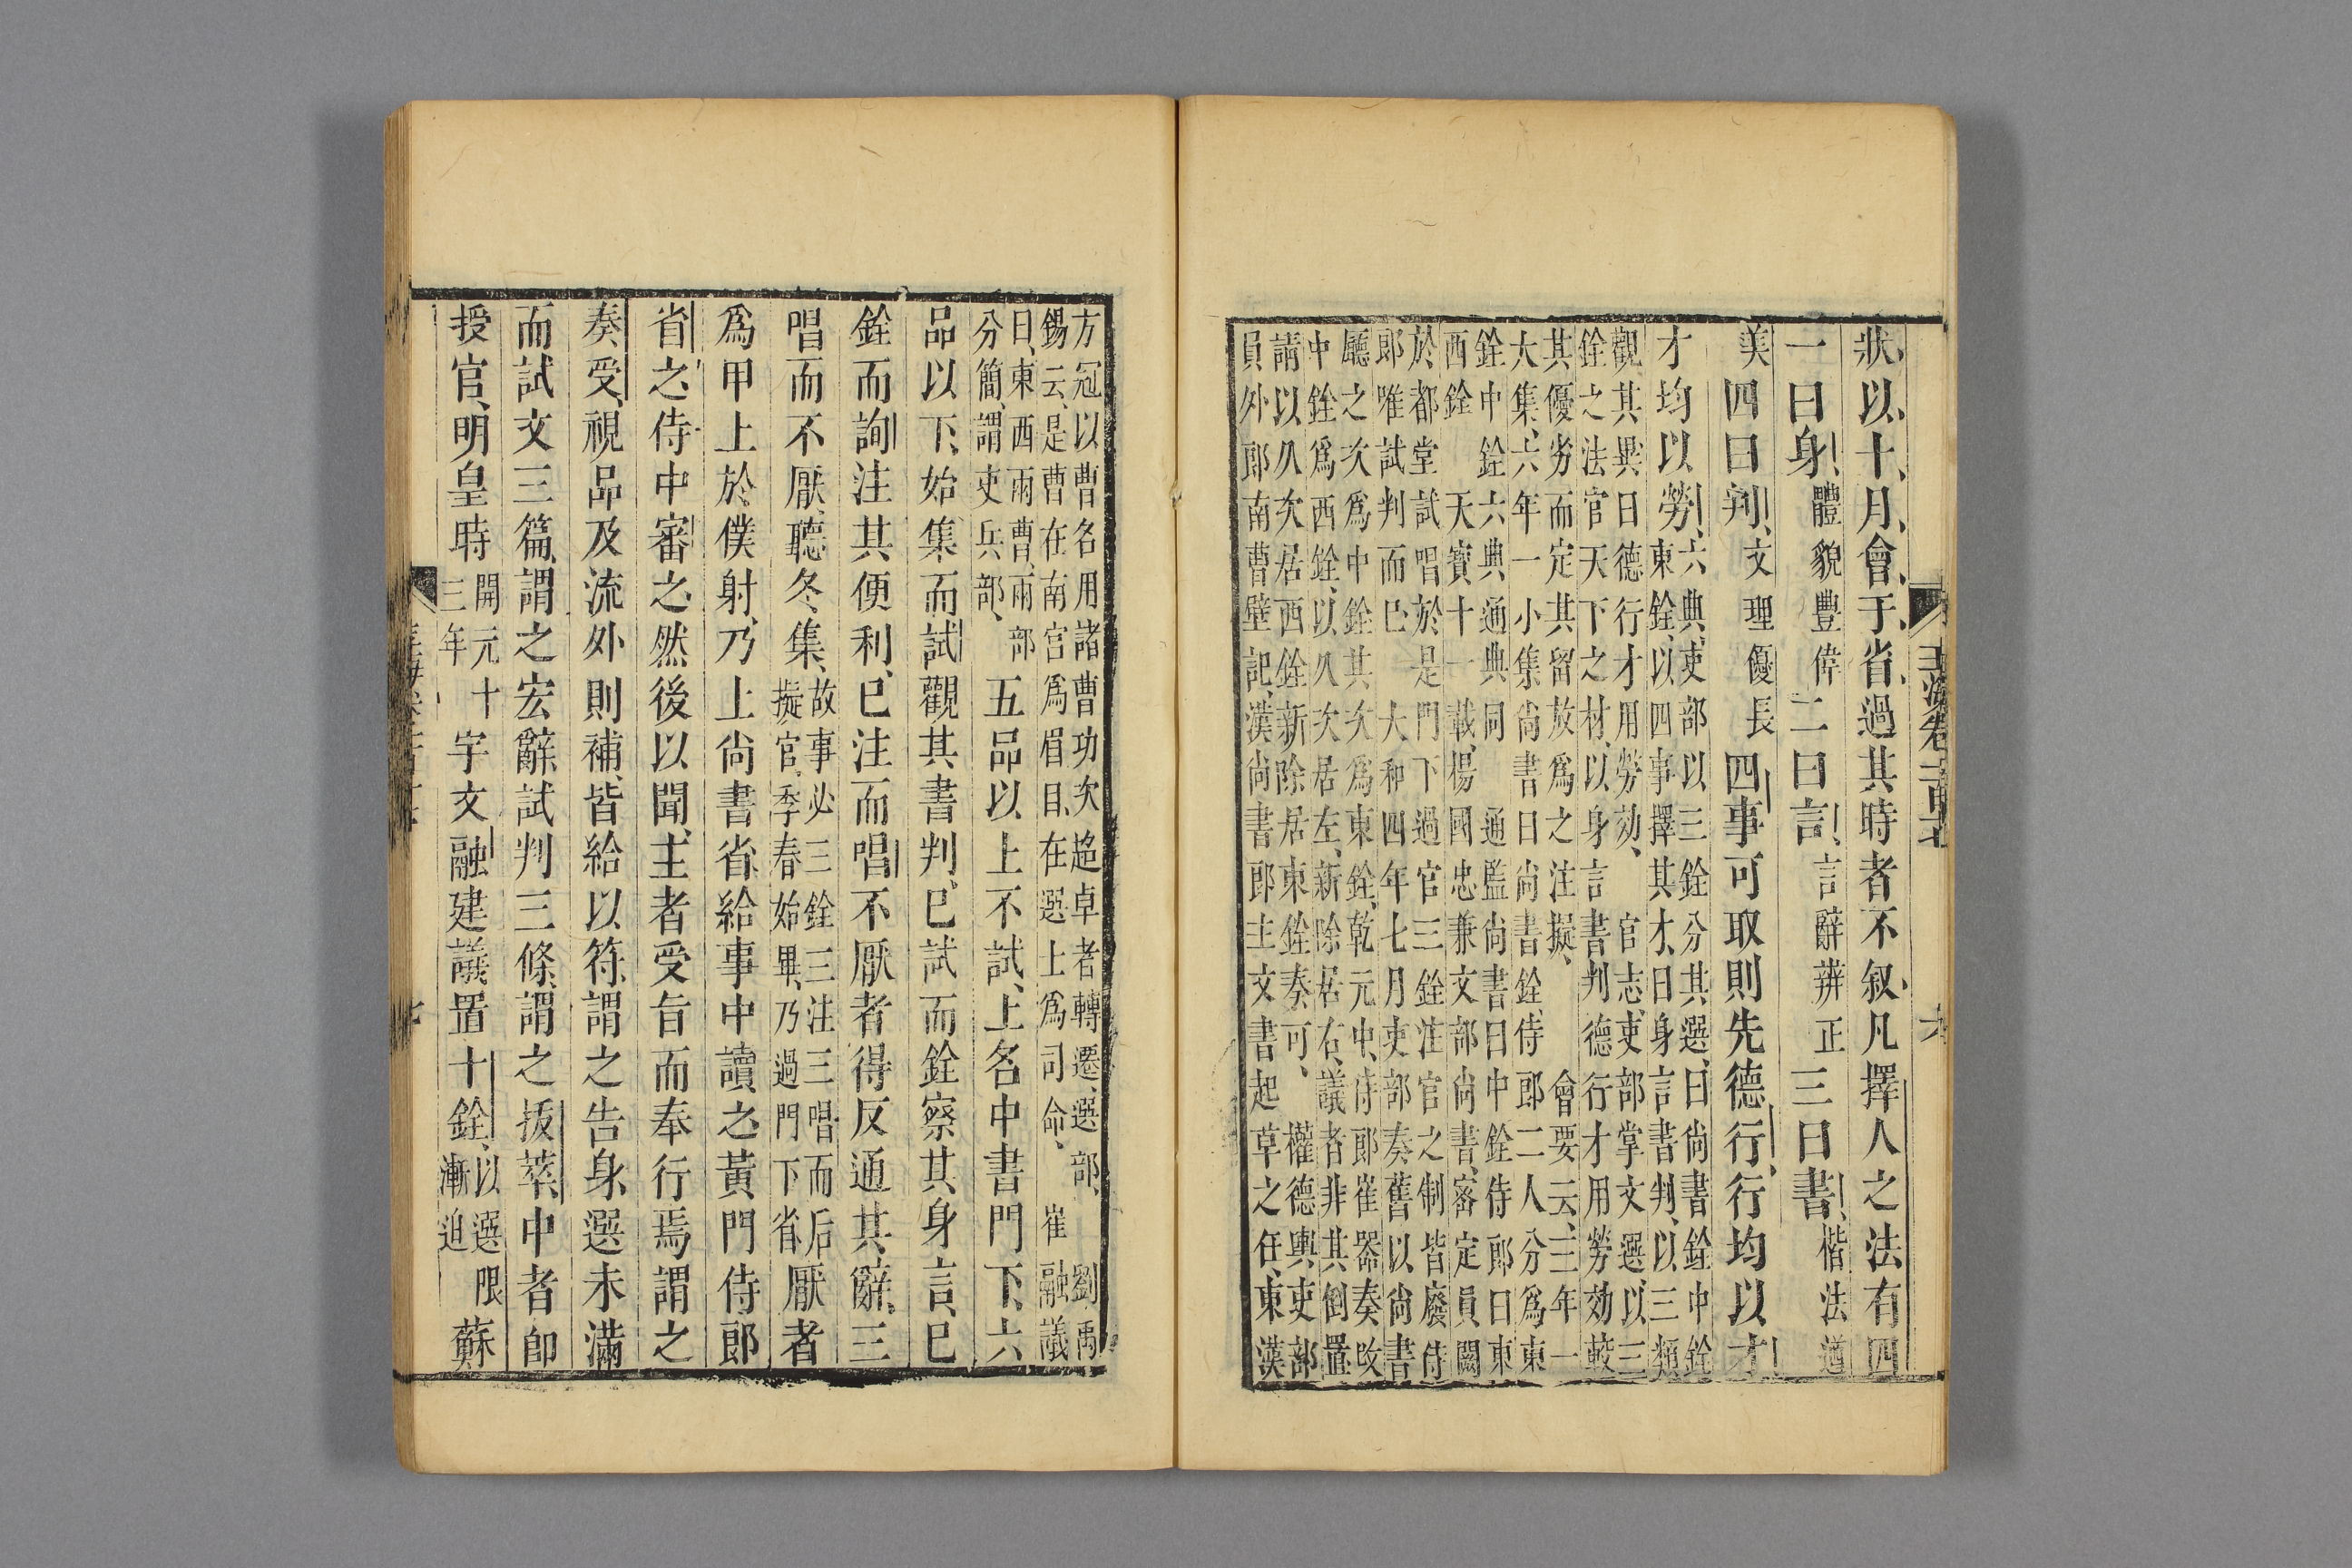 狀以十月會于省過其時者不叙凡擇人之法有四
一曰身體貌豐偉二曰言言辭辨正三曰書楷法遒
美四曰判文理優長四事可取則先德行行均以才
才均以勞六典吏部以三銓分其選曰尚書銓中銓
東銓以四事擇其才曰身言書判以三類
觀其異曰德行才用勞効官志吏部掌文選以三
銓之法官天下之材以身言書判德行才用勞効較
其優劣而定其留放爲之注擬會要云三年一
大集六年一小集尚書曰尚書銓侍郎二人分爲東
銓中銓六典通典同通監尚書曰中銓侍郎曰東
西銓天寶十一載楊國忠兼文部尚書審定員闕
於都堂試唱於是門下過官三銓注官之制皆廢侍
郎唯試判而已大和四年七月吏部奏舊以尚書
廳之次爲中銓其次爲東銓乾元中侍郎崔器奏改
中銓爲西銓以久次居左新除居右議者非其倒置
請以久次居西銓新除居東銓奏可權德輿吏部
員外郎南曹壁記漢尚書郎主文書起草之任東漢
玉海卷一百十七
六
方冠以曹名用諸曹功次超卓者轉遷選部劉禹
錫云是曹在南宮爲眉目在選上爲司命崔融議
曰東西兩曹兩部
分簡謂吏兵部五品以上不試上名中書門下六
品以下始集而試觀其書判已試而銓察其身言已
銓而詢注其便利已注而唱不厭者得反通其辭三
唱而不厭聽冬集故事必三銓三注三唱而后厭者
擬官季春始畢乃過門下省
爲甲上於僕射乃上尚書省給事中讀之黃門侍郎
省之侍中審之然後以聞主者受旨而奉行焉謂之
奏受視品及流外則補皆給以符謂之告身選未滿
而試文三篇謂之宏辭試判三條謂之拔萃中者卽
授官明皇時開元十宇文融建議置十銓以選限蘇
三年漸迫